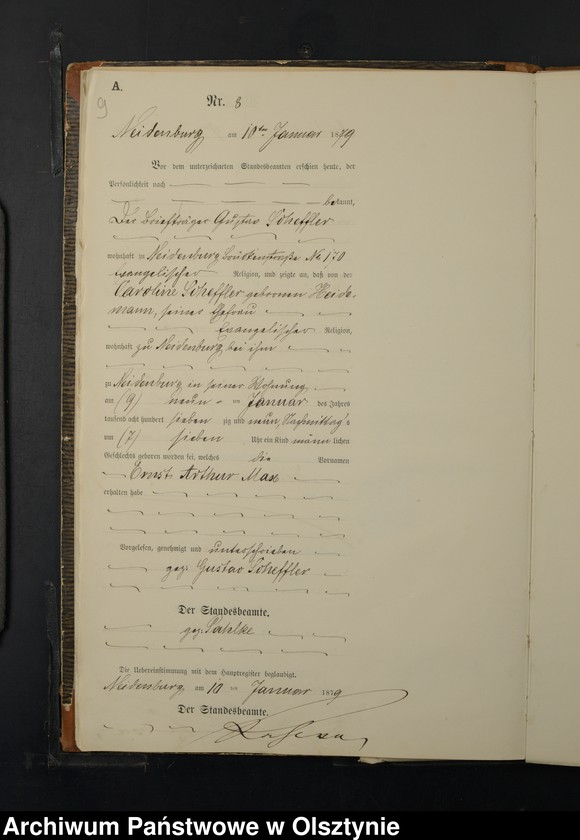 A.
9
Nr. 8
Neidenburg am 10ten Januar 1879
Vor dem unterzeichneten Standesbeamten erschien heute, der
Persönlichkeit nach
bekannt,
Der Briefträger Gustav Scheffler
wohnhaft zu Neidenburg Brückenstraße No 170
Evangelischer Religion, und zeigte an, daß von der
Caroline Scheffler geborenen Heide-
mann, seiner Ehefrau
Evangelischer Religion,
wohnhaft zu Neidenburg bei ihm
zu Neidenburg in seiner Wohnung
am (9) neun ten Januar des Jahres
tausend acht hundert sieben zig und neun, Nachmittags
um (7) sieben Uhr ein Kind männlichen
Geschlechts geboren worden sei, welches die Vornamen
Ernst Arthur Max
erhalten habe
Vorgelesen, genehmigt und unterschrieben
gez. Gustav Scheffler
Der Standesbeamte.
gez. Pahlke
Die Uebereinstimmung mit dem Hauptregister beglaubigt.
Neidenburg am 10 ten Januar 1879
Der Standesbeamte.
Archiwum Państwowe w Olsztynie